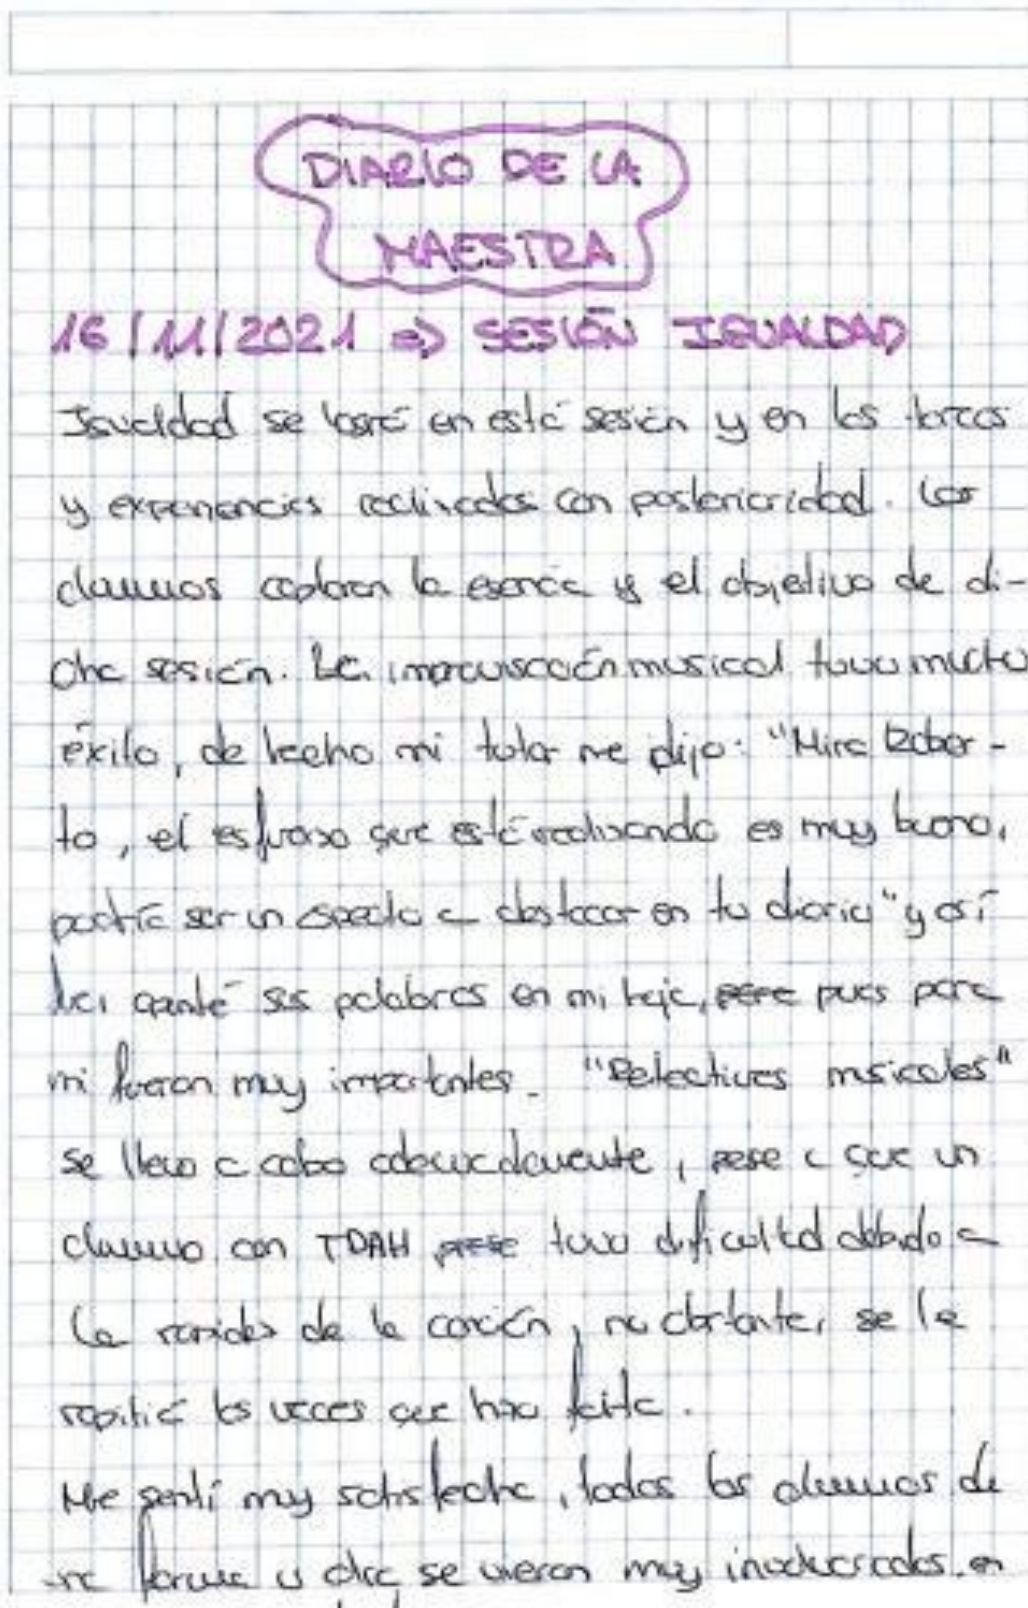 DIARIO DE LA
MAESTRA
16/11/2021 => SESIÓN IGUALDAD
Igualdad se logró en está sesión y en las tareas
y experiencias realizadas con posterioridad. Los
alumnos captaron la esencia y el objetivo de di-
cha sesión. La improvisación musical tuvo mucho
éxito, de hecho mi tutor me dijo: "Mira
to, el esfuerzo que está realizando es muy bueno,
podría ser un aspecto a destacar en tu diario" y así
apunté sus palabras en mi hoja, pues para
mi fueron muy importantes. "Detectives musicales"
se llevo a cabo adecuadamente, pese a que un
alumno con TDAH tuvo dificultad debido a
la rapidez de la canción, no obstante, se le
repitió las veces que hizo falta.
Me sentí muy satisfecha, todos los alumnos de
una forma u otra se vieron muy involucrados en